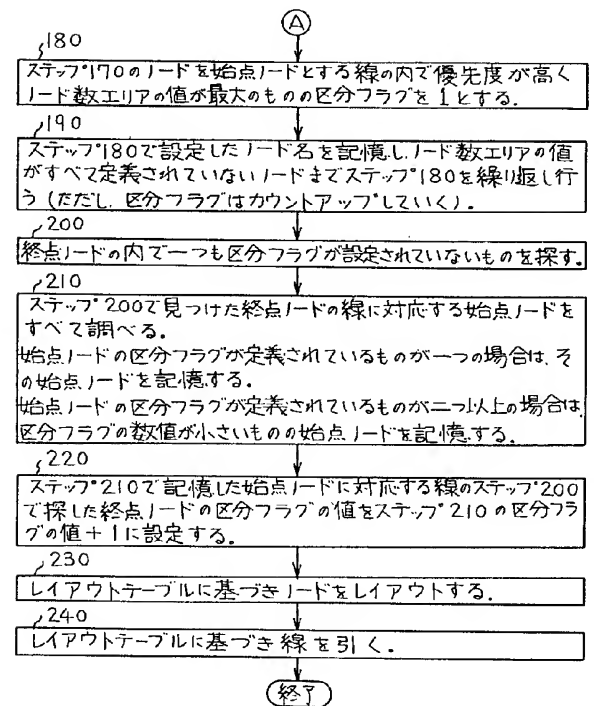 A
180
ステップ170のノードを始点ノードとする線の内で優先度が高く
ノード数エリアの値が最大のものの区分フラグを1とする.
190
ステップ180で設定したノード名を記憶し,ノード数エリアの値
がすべて定義されていないノードまでステップ180を繰り返し行
う(ただし,区分フラグはカウントアップしていく).
200
終点ノードの内で一つも区分フラグが設定されていないものを探す.
210
ステップ200で見つけた終点ノードの線に対応する始点ノードを
すべて調べる.
始点ノードの区分フラグが定義されているものが一つの場合は,そ
の始点ノードを記憶する.
始点ノードの区分フラグが定義されているものが二つ以上の場合は,
区分フラグの数値が小さいものの始点ノードを記憶する.
220
ステップ210で記憶した始点ノードに対応する線のステップ200
で探した終点ノードの区分フラグの値をステップ210の区分フラ
グの値+1に設定する.
230
レイアウトテーブルに基づきノードをレイアウトする.
240
レイアウトテーブルに基づき線を引く.
終了